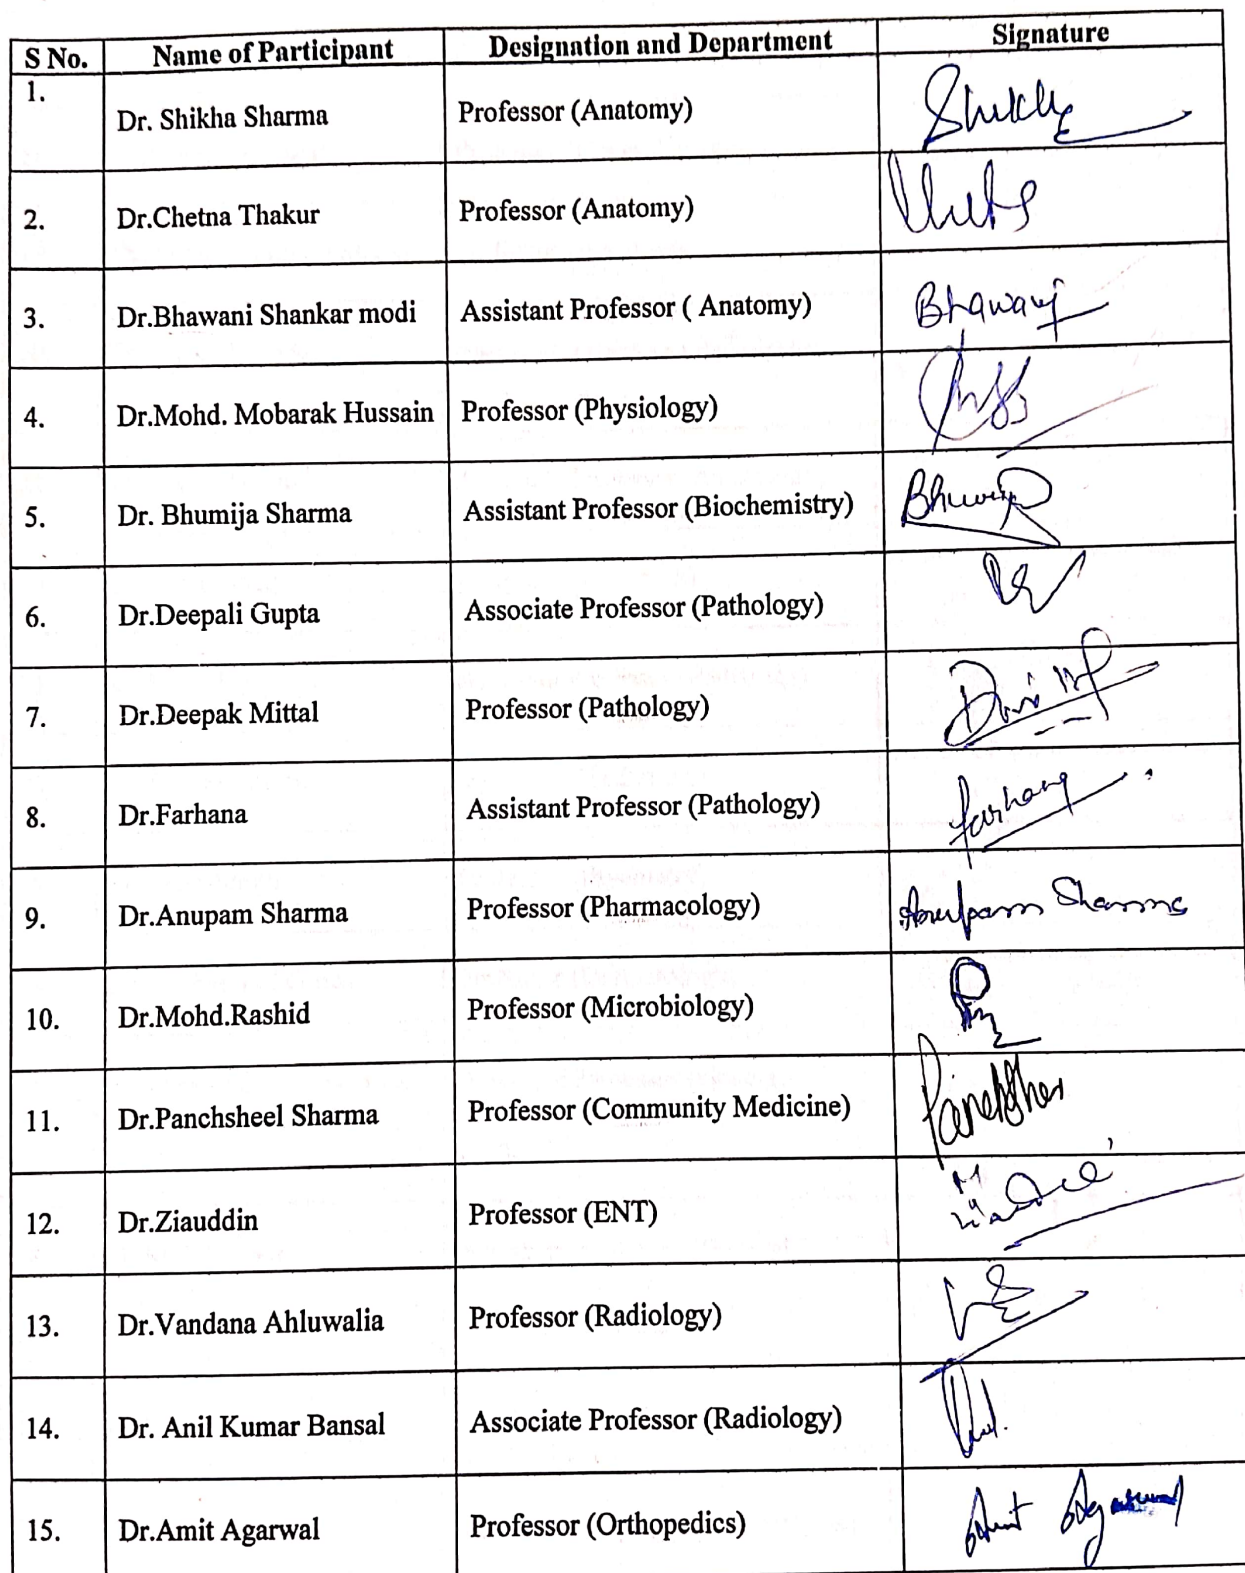 S No. Name of Participant Designation and Department Signature
1. Dr. Shikha Sharma Professor (Anatomy)
2. Dr.Chetna Thakur Professor (Anatomy)
3. Dr.Bhawani Shankar modi Assistant Professor ( Anatomy) Bhawani
4. Dr.Mohd. Mobarak Hussain Professor (Physiology)
5. Dr. Bhumija Sharma Assistant Professor (Biochemistry)
6. Dr.Deepali Gupta Associate Professor (Pathology)
7. Dr.Deepak Mittal Professor (Pathology)
8. Dr.Farhana Assistant Professor (Pathology) farhana
9. Dr.Anupam Sharma Professor (Pharmacology) Anupam Sharma
10. Dr.Mohd.Rashid Professor (Microbiology)
11. Dr.Panchsheel Sharma Professor (Community Medicine)
12. Dr.Ziauddin Professor (ENT)
13. Dr.Vandana Ahluwalia Professor (Radiology)
14. Dr. Anil Kumar Bansal Associate Professor (Radiology)
15. Dr.Amit Agarwal Professor (Orthopedics) Amit Agarwal